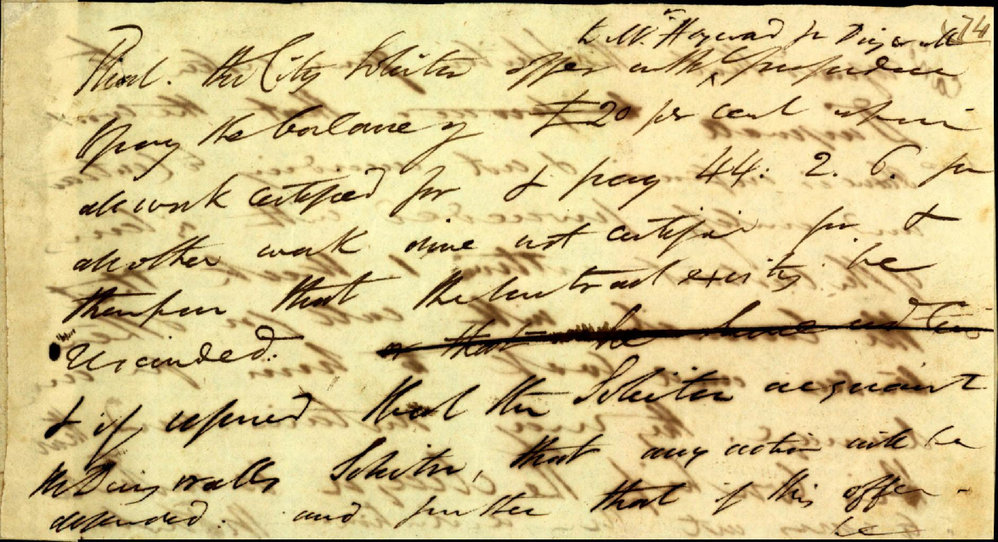 74
to Mr. Heyward for Dingwall
That. the City Solicitor offer with prejudice
to pay the balance of £20 per cent upon
all work certified for & pay 44: 2. 6. for
all other work done not certified for &
thereupon that the Contract existing be
rescinded. or that he have
& if refused that the Solicitor acquaint
the Dingwalls Solicitor, that any action will be
defended: and further that if this offer
be